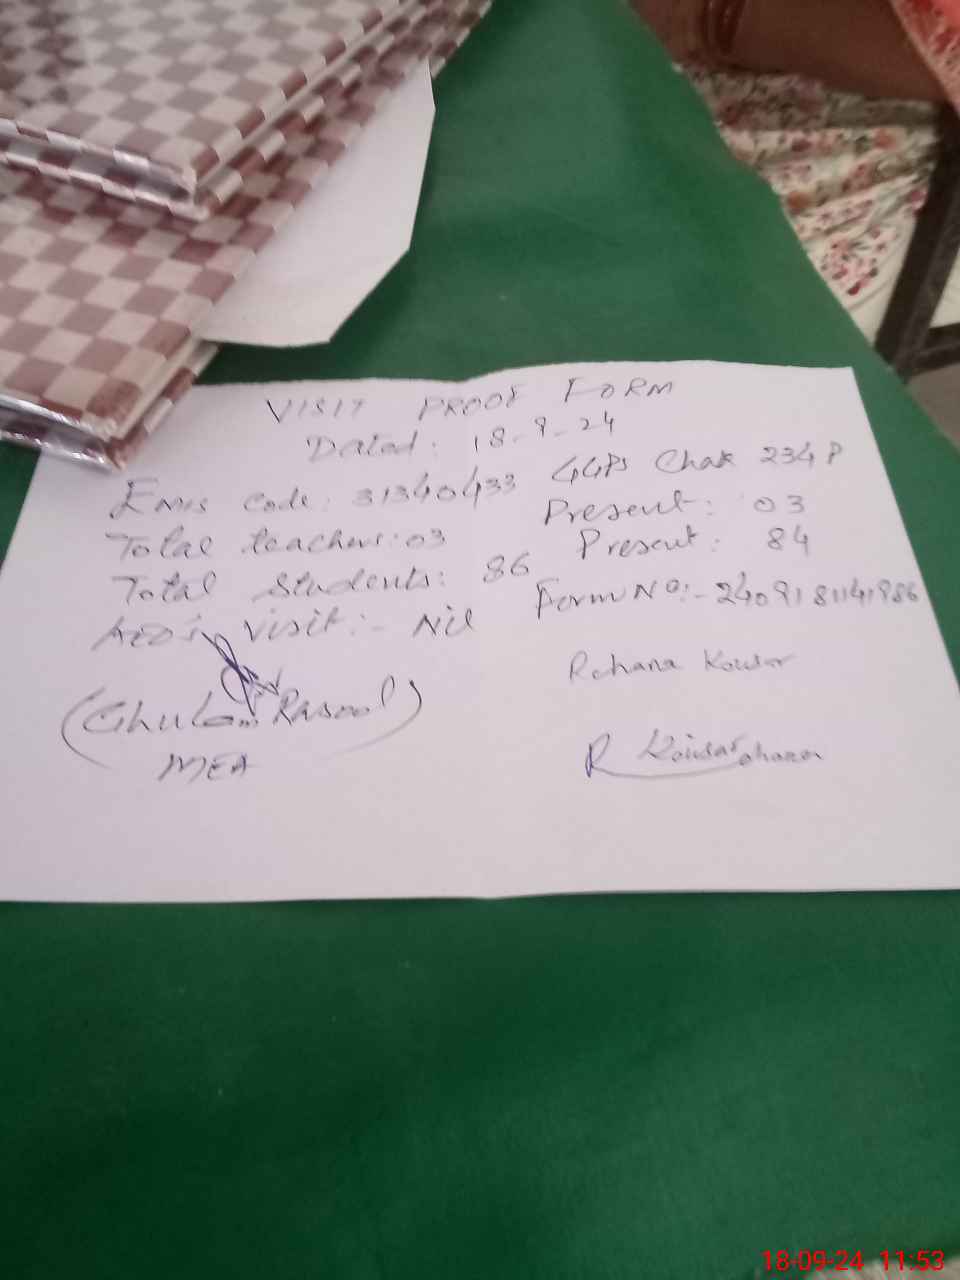 VISIT PROOF FORM
Dated: 18-9-24
Emis Code: 31340433 GGPS Chak 234 P
Total teachers: 03 Present: 03
Total Students: 86 Present: 84
AEO's visit:- Nil Form No:- 2409181141986
(Ghulam Rasool) Rehana Kousar
MEA R Kousar
18-09-24 11:53